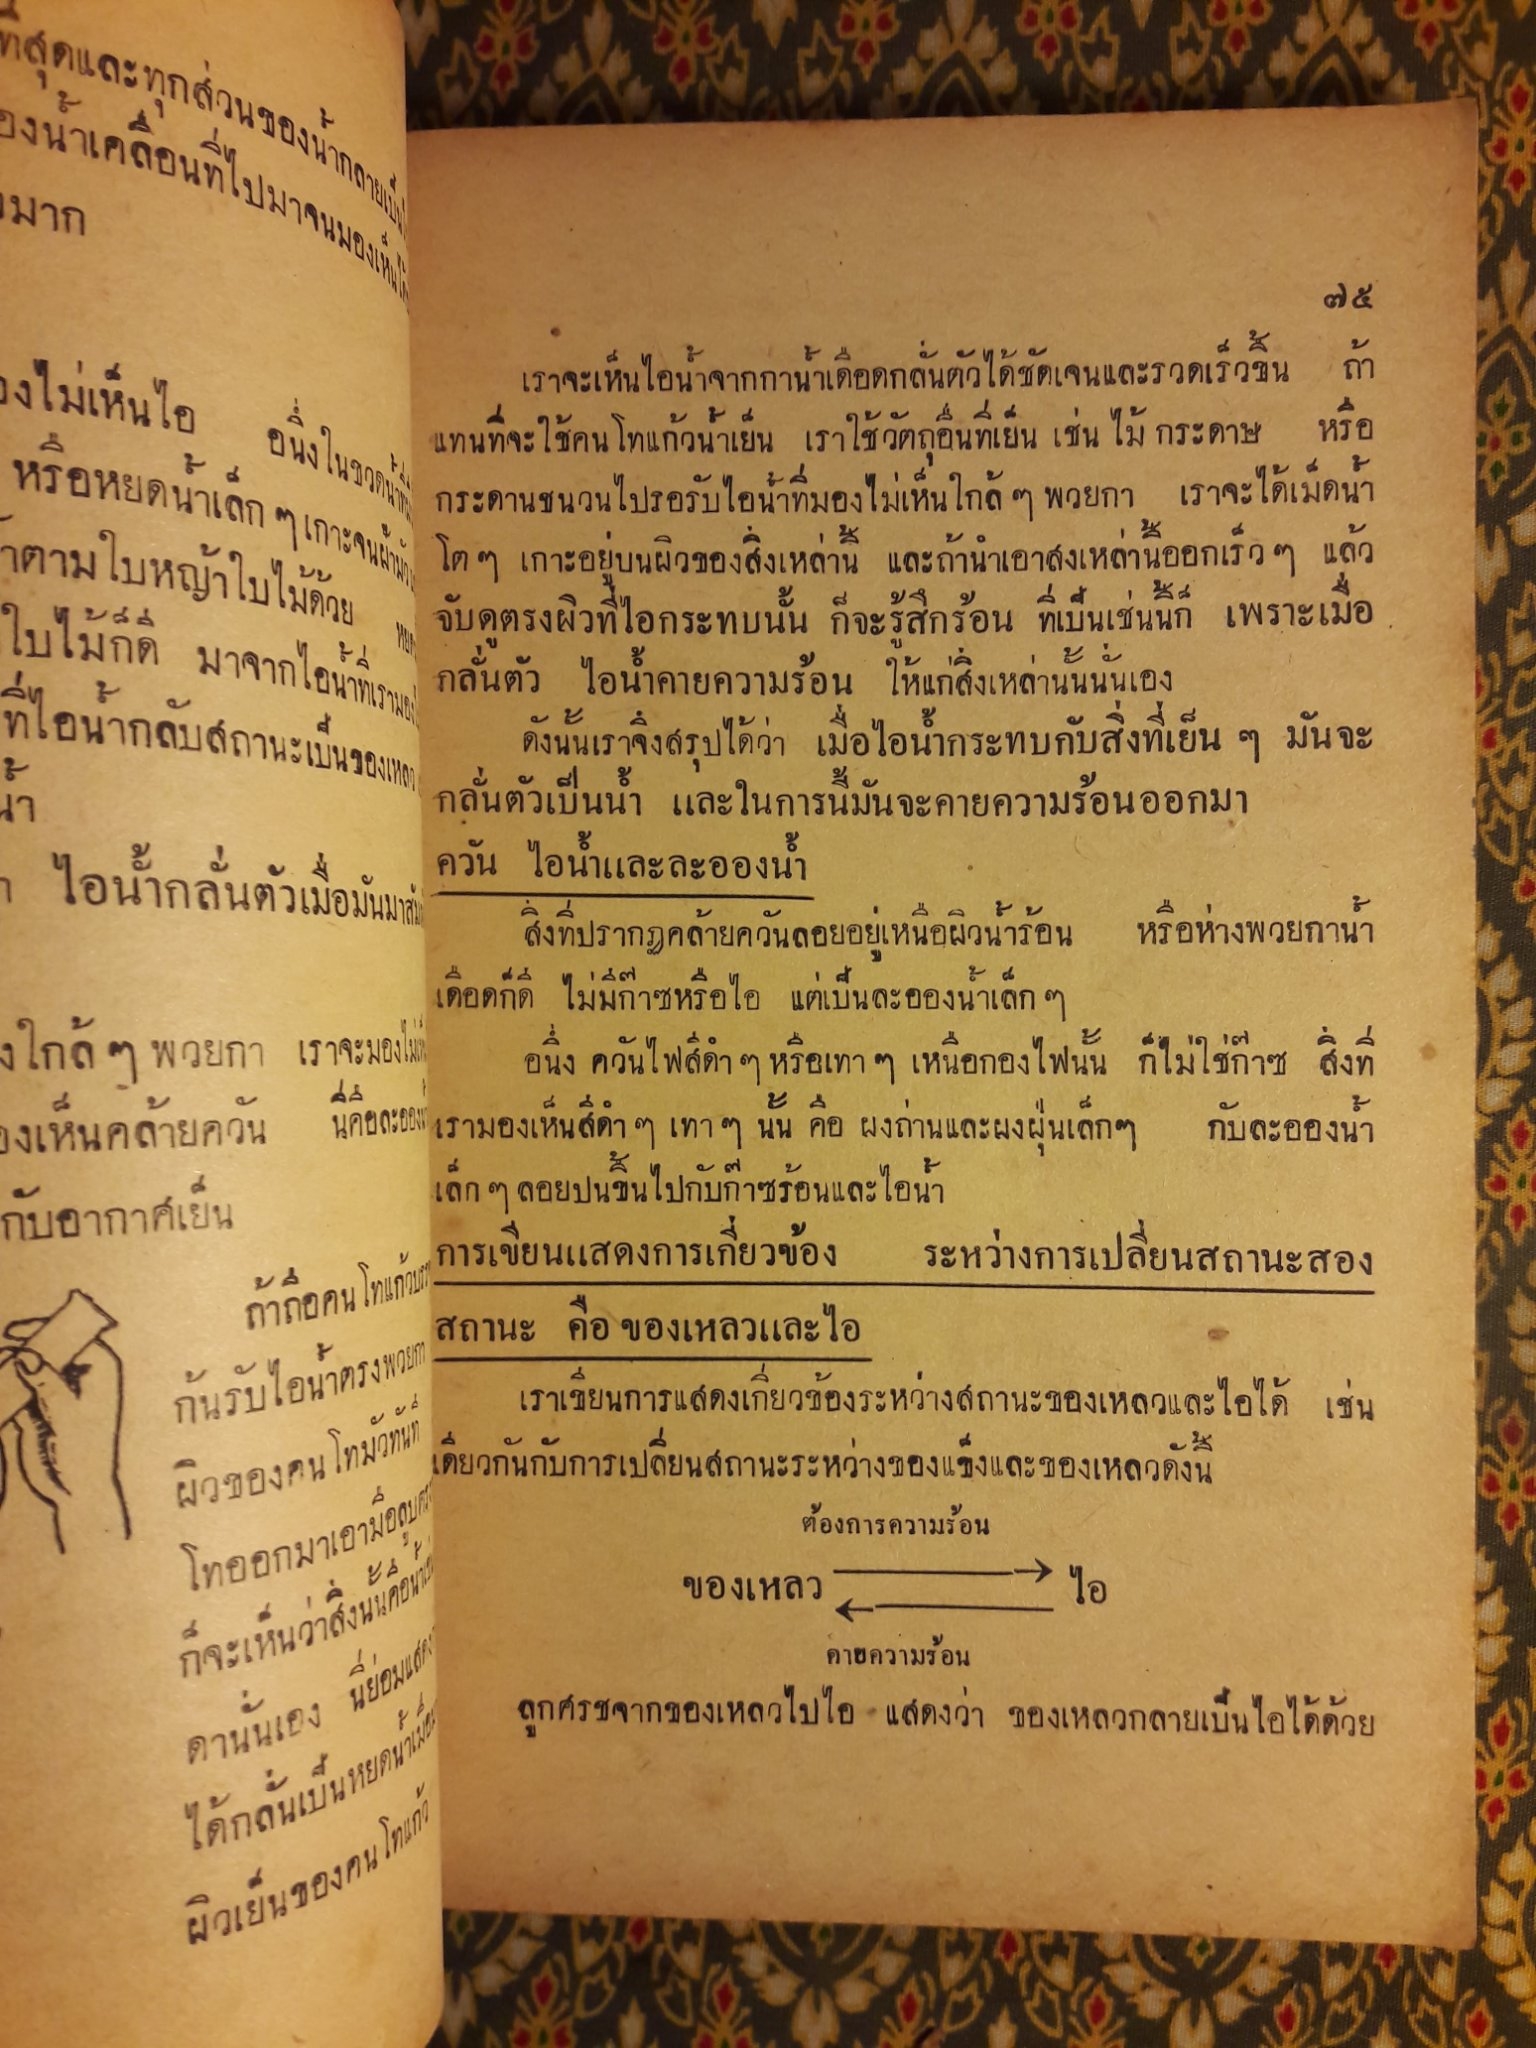 ที่สุดและทุกส่วนของน้ำกลายเป็น
องน้ำเคลื่อนที่ไปมาจนมองเห็นได้
มาก
องไม่เห็นไอ อนึ่งในขวดน้ำที่
หรือหยดน้ำเล็กๆ เกาะจนฝ้ามัว
ตามใบหญ้าใบไม้ด้วย
ใบไม้ก็ดี มาจากไอน้ำที่เรามอง
ที่ไอน้ำกลับสถานะเป็นของเหลว
น้ำ
ไอน้ำกลั่นตัวเมื่อมันมาสัม
งใกล้ๆ พวยกา เราจะมองไม่เห็
องเห็นคล้ายควัน นี่คือละอองน้ำ
กับอากาศเย็น
ถ้าถือคนโทแก้วบรร
ก้นรับไอน้ำตรงพวยกา
ผิวของคนโทมัวทันที
โทออกมาเอามือลูบ
ก็จะเห็นว่าสิ่งนั้นคือน้ำ
ดานั่นเอง นี่ย่อมแสดง
ได้กลั่นเป็นหยดน้ำเมื่อ
ผิวเย็นของคนโทแก้ว
๗๕
เราจะเห็นไอน้ำจากกาน้ำเดือดกลั่นตัวได้ชัดเจนและรวดเร็วขึ้น ถ้า
แทนที่จะใช้คนโทแก้วน้ำเย็น เราใช้วัตถุอื่นที่เย็น เช่น ไม้ กระดาษ หรือ
กระดานชนวนไปรอรับไอน้ำที่มองไม่เห็นใกล้ๆ พวยกา เราจะได้เม็ดน้ำ
โตๆ เกาะอยู่บนผิวของสิ่งเหล่านี้ และถ้านำเอาสงเหล่านี้ออกเร็วๆ แล้ว
จับดูตรงผิวที่ไอกระทบนั้น ก็จะรู้สึกร้อน ที่เป็นเช่นนี้ก็ เพราะเมื่อ
กลั่นตัว ไอน้ำคายความร้อน ให้แก่สิ่งเหล่านั้นนั่นเอง
ดังนั้นเราจึงสรุปได้ว่า เมื่อไอน้ำกระทบกับสิ่งที่เย็น ๆ มันจะ
กลั่นตัวเป็นน้ำ และในการนี้มันจะคายความร้อนออกมา
ควัน ไอน้ำและละอองน้ำ
สิ่งที่ปรากฏคล้ายควันลอยอยู่เหนือผิวน้ำร้อน หรือห่างพวยกาน้ำ
เดือดก็ดี ไม่มีก๊าซหรือไอ แต่เป็นละอองน้ำเล็กๆ
อนึ่ง ควันไฟสีดำๆ หรือเทาๆ เหนือกองไฟนั้น ก็ไม่ใช่ก๊าซ สิ่งที่
เรามองเห็นสีดำๆ เทาๆ นั้น คือ ผงถ่านและผงฝุ่นเล็กๆ กับละอองน้ำ
เล็กๆ ลอยปนขึ้นไปกับก๊าซร้อนและไอน้ำ
การเขียนแสดงการเกี่ยวข้อง ระหว่างการเปลี่ยนสถานะสอง
สถานะ คือ ของเหลวและไอ
เราเขียนการแสดงเกี่ยวข้องระหว่างสถานะของเหลวและไอได้ เช่น
เดียวกันกับการเปลี่ยนสถานะระหว่างของแข็งและของเหลวดังนี้
ต้องการความร้อน
ของเหลว ไอ
คายความร้อน
ลูกศรชจากของเหลวไปไอ แสดงว่า ของเหลวกลายเป็นไอได้ด้วย